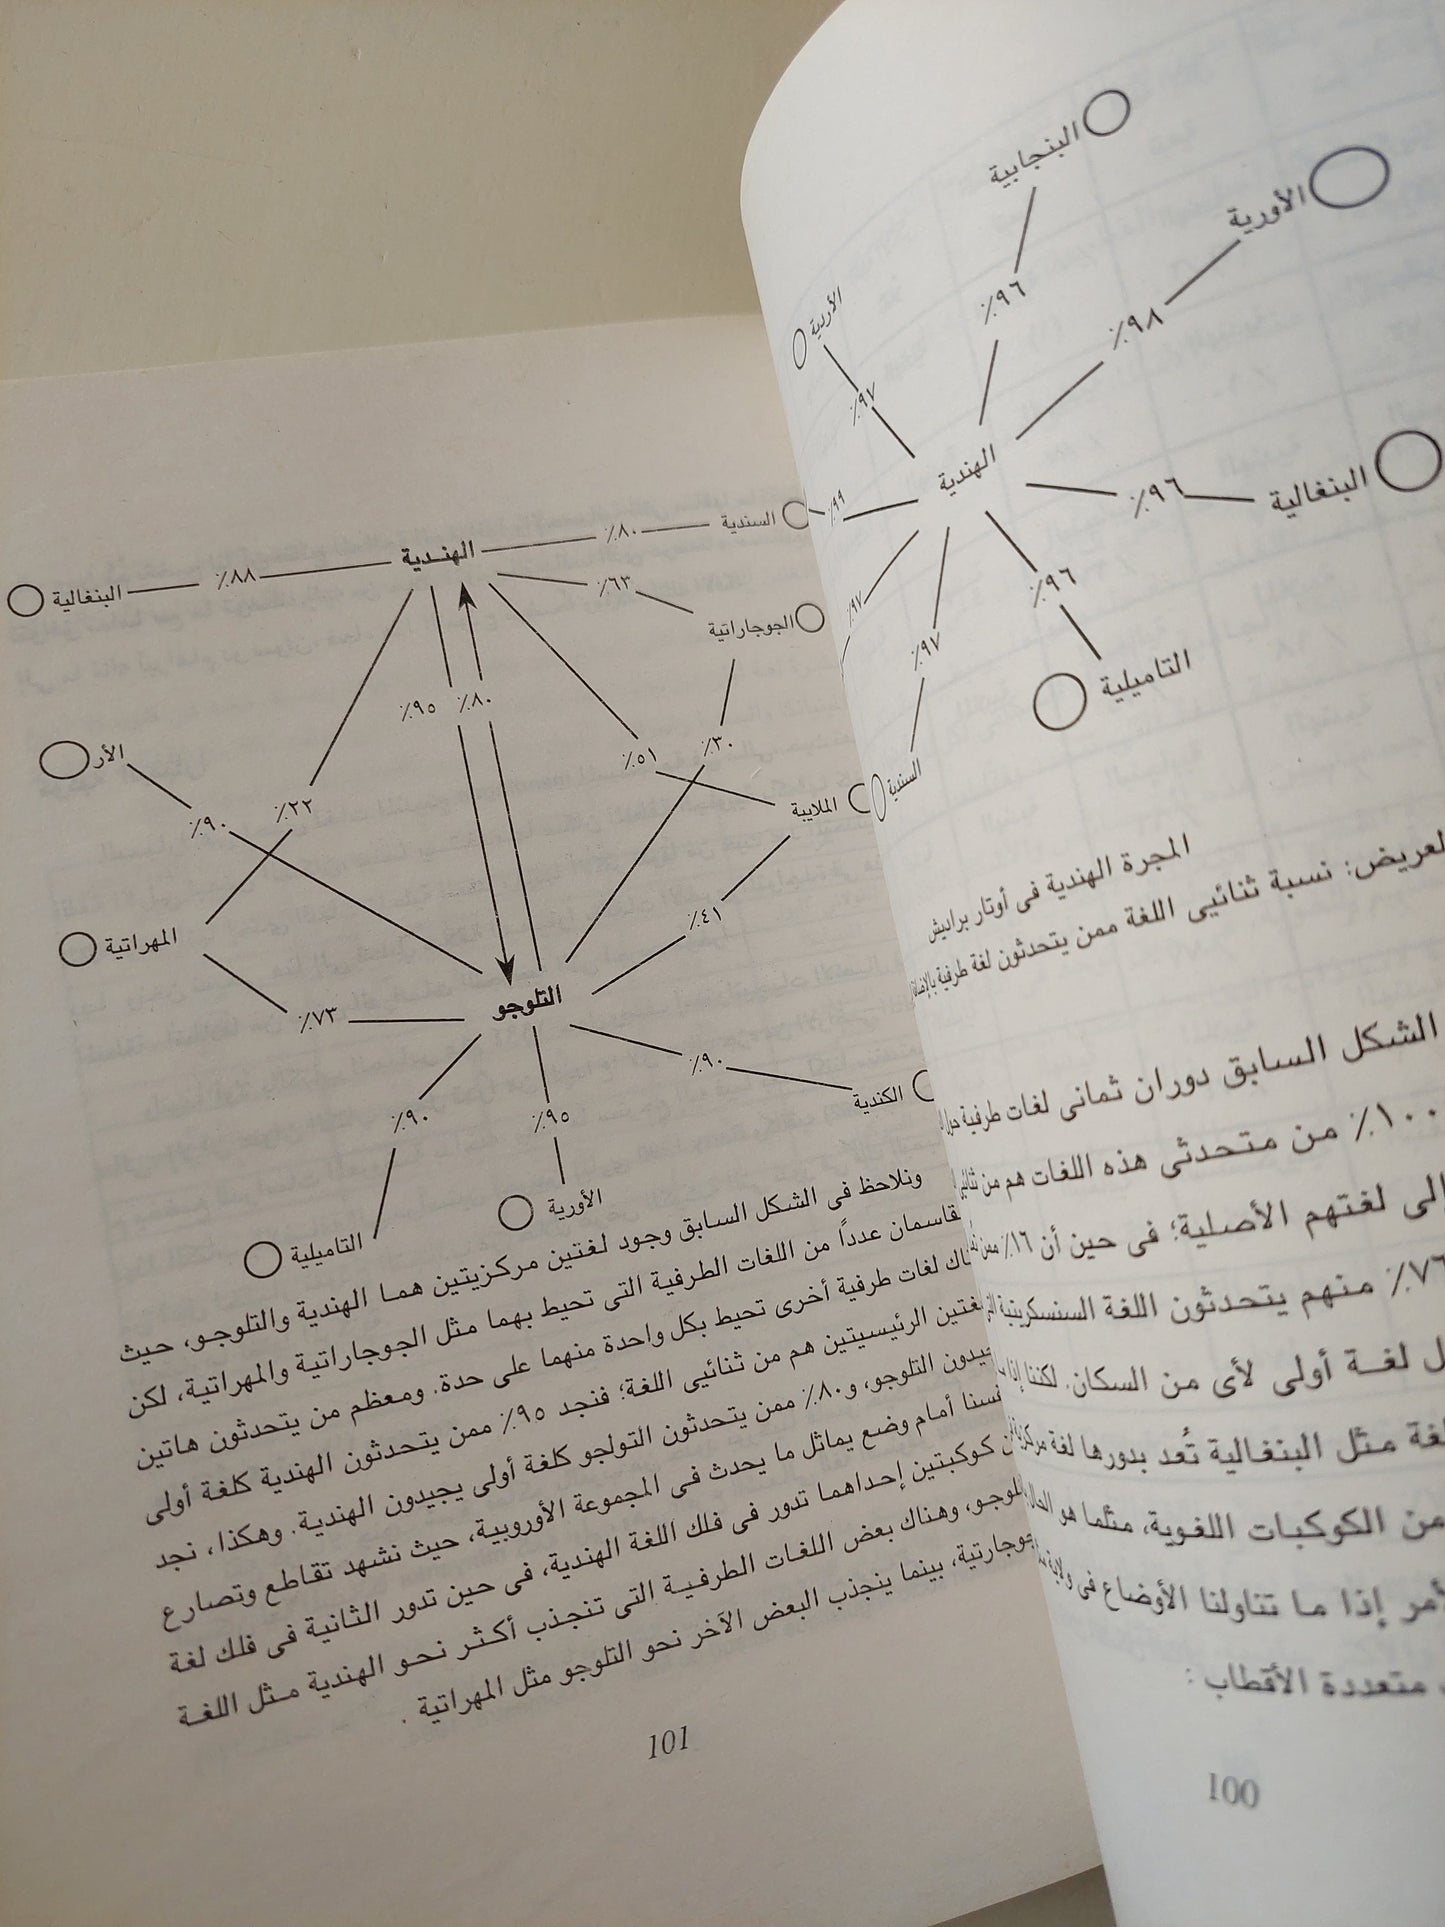 البنجابية
الأورية
الأردية
٪٩٦
٪٩٨
٪٩٧
الهندية
البنغالية
٪٩٦
٪٩٩
٪٩٦
٪٩٧
٪٩٧
التاميلية
السندية
المجرة الهندية فى أوتار براديش
العريض: نسبة ثنائيى اللغة ممن يتحدثون لغة طرفية بالإضافة
الشكل السابق دوران ثمانى لغات طرفية حول
١٠٠٪ من متحدثى هذه اللغات هم من ثنائيى
إلى لغتهم الأصلية؛ فى حين أن ١٦٪ ممن
٧٦٪ منهم يتحدثون اللغة السنسكريتية
لغة أولى لأى من السكان. لكننا إذا
لغة مثل البنغالية تُعد بدورها لغة مركزية
من الكوكبات اللغوية، مثلما هو الحال
الأمر إذا ما تناولنا الأوضاع فى ولاية
متعددة الأقطاب :
100
الهندية
٪٨٠
السندية
البنغالية
٪٨٨
٪٦٣
الجوجاراتية
٪٩٥
٪٨٠
الأر
٪٥١
٪٣٠
٪٩٠
٪٢٢
الملايبة
المهراتية
٪٤١
٪٧٣
التلوجو
٪٩٠
الكندية
٪٩٠
٪٩٥
الأورية
التاميلية
ونلاحظ فى الشكل السابق وجود لغتين مركزيتين هما الهندية والتلوجو، حيث
تتقاسمان عدداً من اللغات الطرفية التى تحيط بهما مثل الجوجاراتية والمهراتية، لكن
هناك لغات طرفية أخرى تحيط بكل واحدة منهما على حدة. ومعظم من يتحدثون هاتين
اللغتين الرئيسيتين هم من ثنائيى اللغة؛ فنجد ٩٥٪ ممن يتحدثون الهندية كلغة أولى
يجيدون التلوجو، و٨٠٪ ممن يتحدثون التولجو كلغة أولى يجيدون الهندية. وهكذا، نجد
أنفسنا أمام وضع يماثل ما يحدث فى المجموعة الأوروبية، حيث نشهد تقاطع وتصارع
كوكبتين إحداهما تدور فى فلك اللغة الهندية، فى حين تدور الثانية فى فلك لغة
التلوجو، وهناك بعض اللغات الطرفية التى تنجذب أكثر نحو الهندية مثل اللغة
الجوجارتية، بينما ينجذب البعض الآخر نحو التلوجو مثل المهراتية .
101